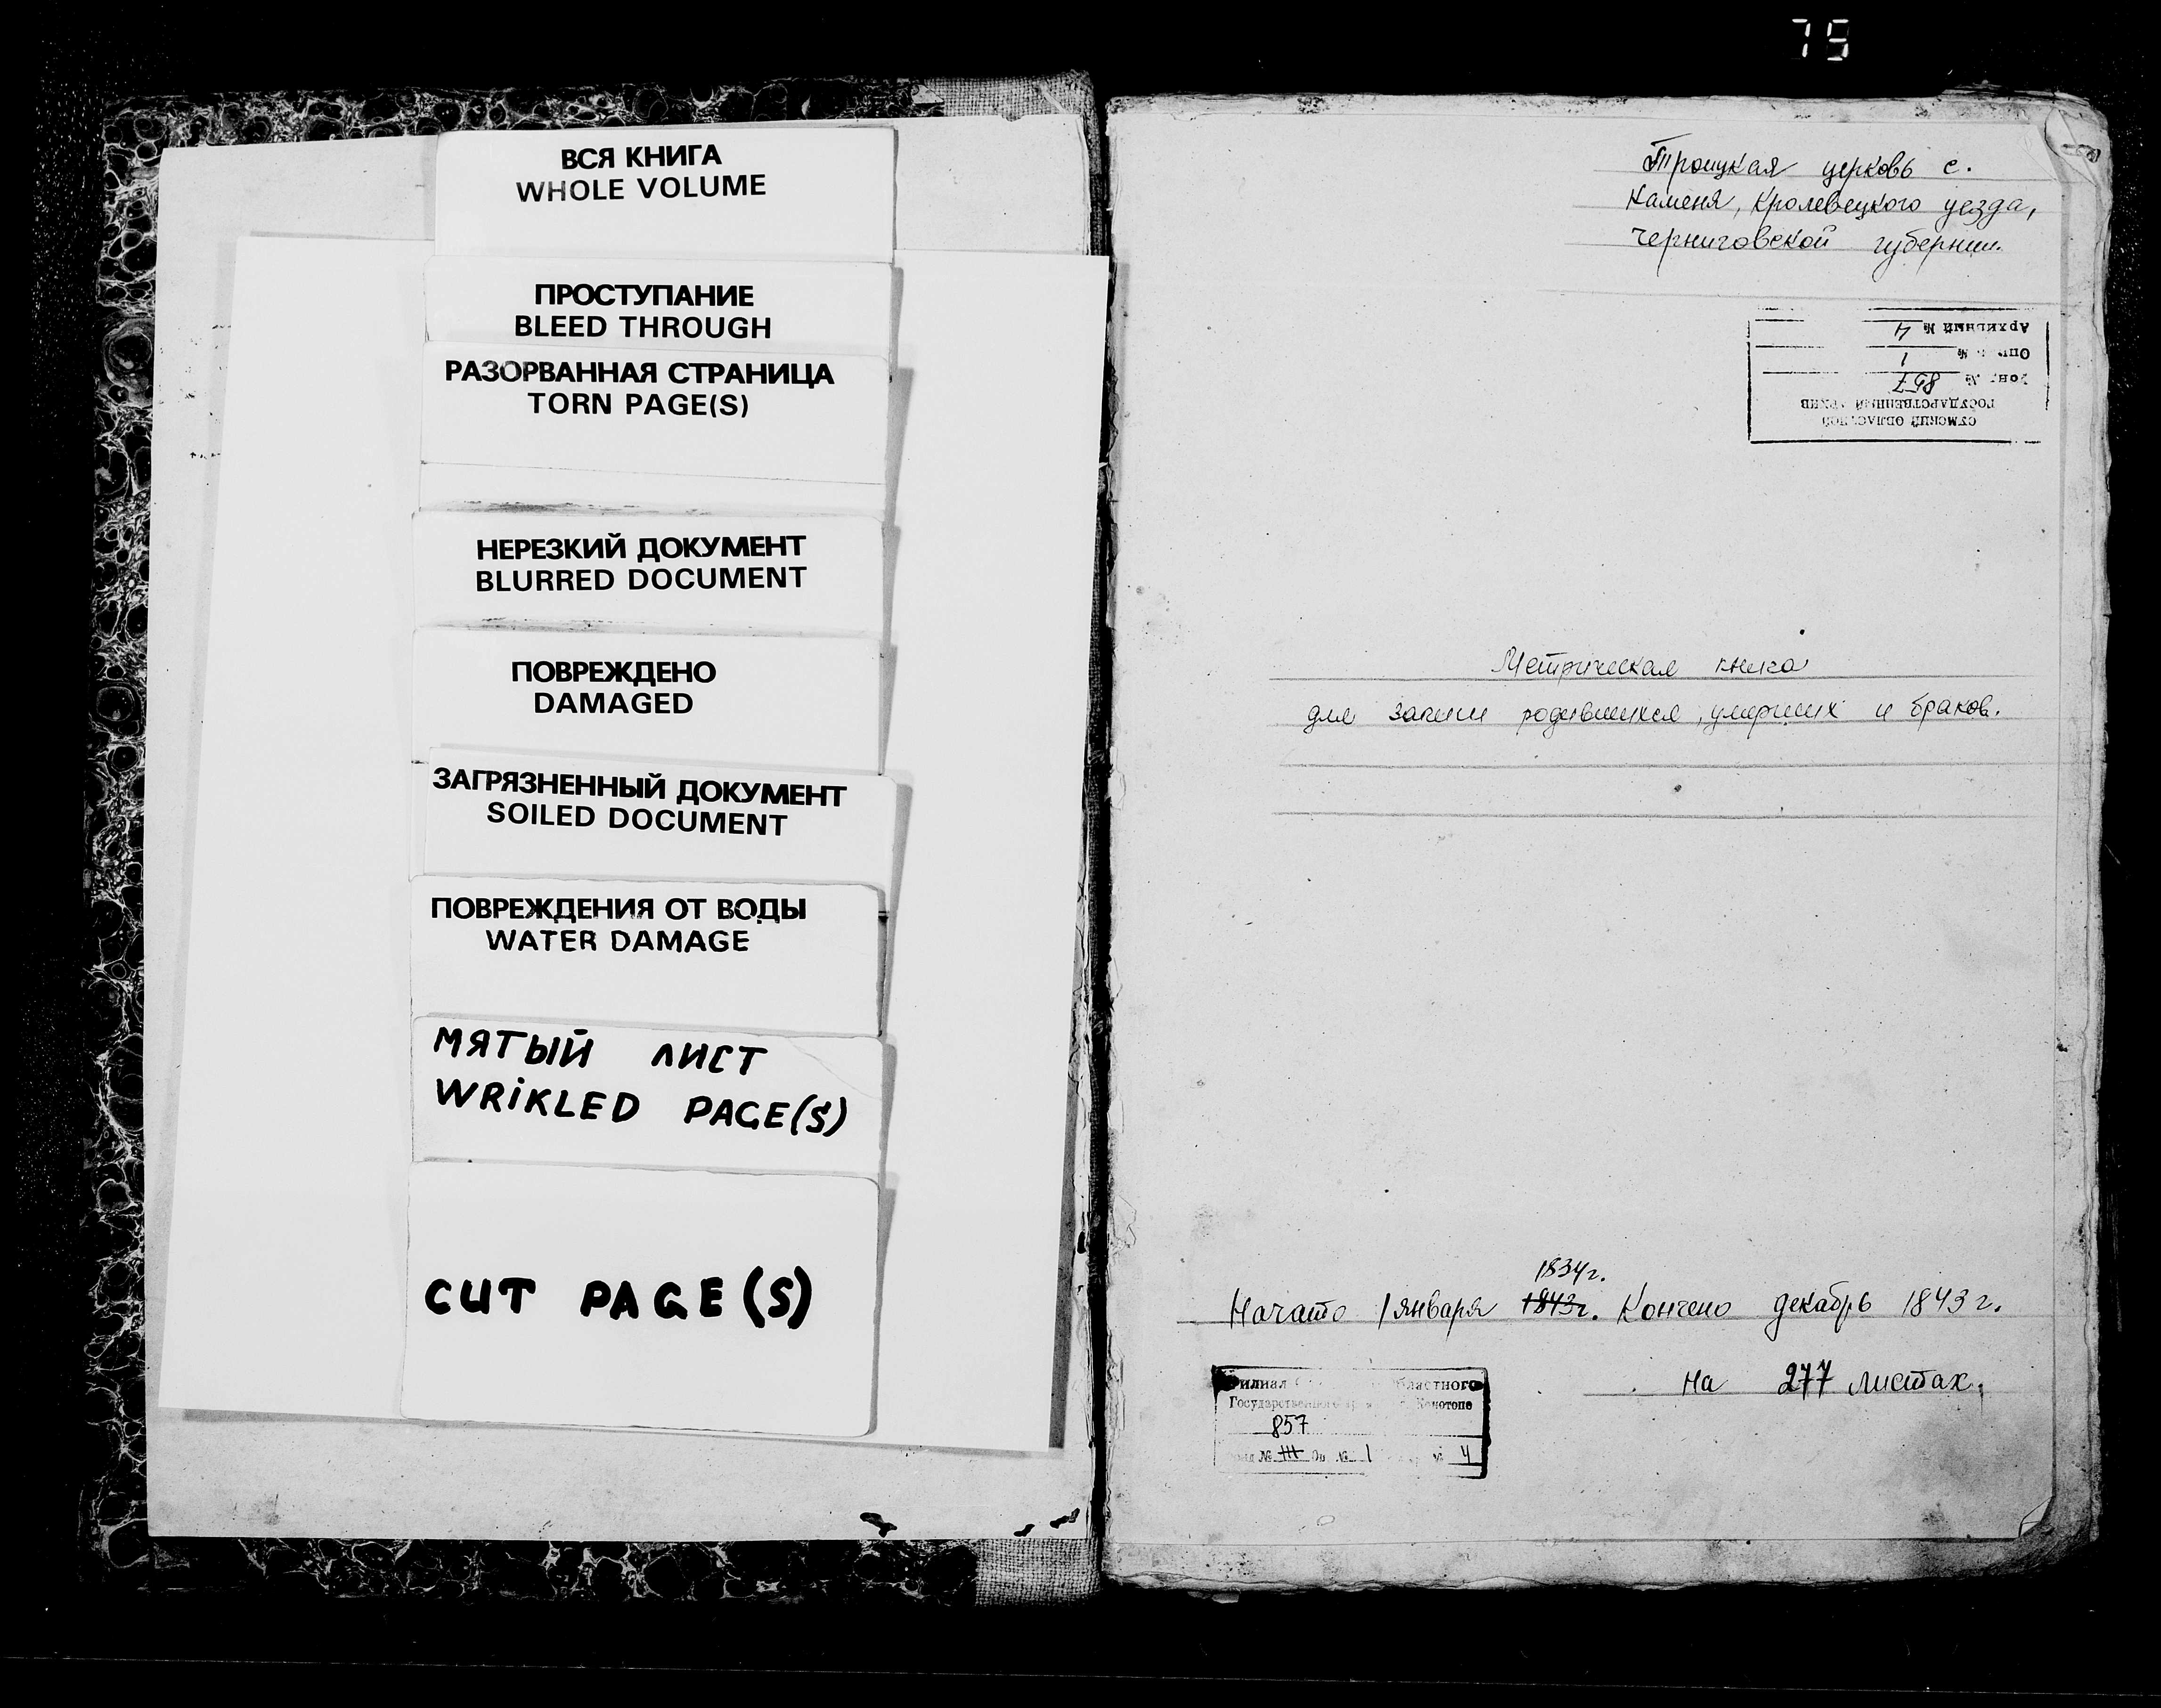 75
ВСЯ КНИГА
WHOLE VOLUME
ПРОСТУПАНИЕ
BLEED THROUGH
РАЗОРВАННАЯ СТРАНИЦА
TORN PAGE(S)
НЕРЕЗКИЙ ДОКУМЕНТ
BLURRED DOCUMENT
ПОВРЕЖДЕНО
DAMAGED
ЗАГРЯЗНЕННЫЙ ДОКУМЕНТ
SOILED DOCUMENT
ПОВРЕЖДЕНИЯ ОТ ВОДЫ
WATER DAMAGE
МЯТЫЙ ЛИСТ
WRIKLED PAGE(S)
CUT PAGE(S)
Троицкая церковь с.
Каменя, Кролевецкого уезда,
Черниговской губернии.
СУМСКИЙ ОБЛАСТНОЙ
ГОСУДАРСТВЕННЫЙ АРХИВ
№ 857
№ 1
Архивный № 4
Метрическая книга
для записи родившихся, умерших и браков.
1834г.
Начато 1 января 1843г. Кончено декабрь 1843 г.
на 277 листах.
Филиал областного
Государственного Конотопе
857
№ Оп. № 1 № 4